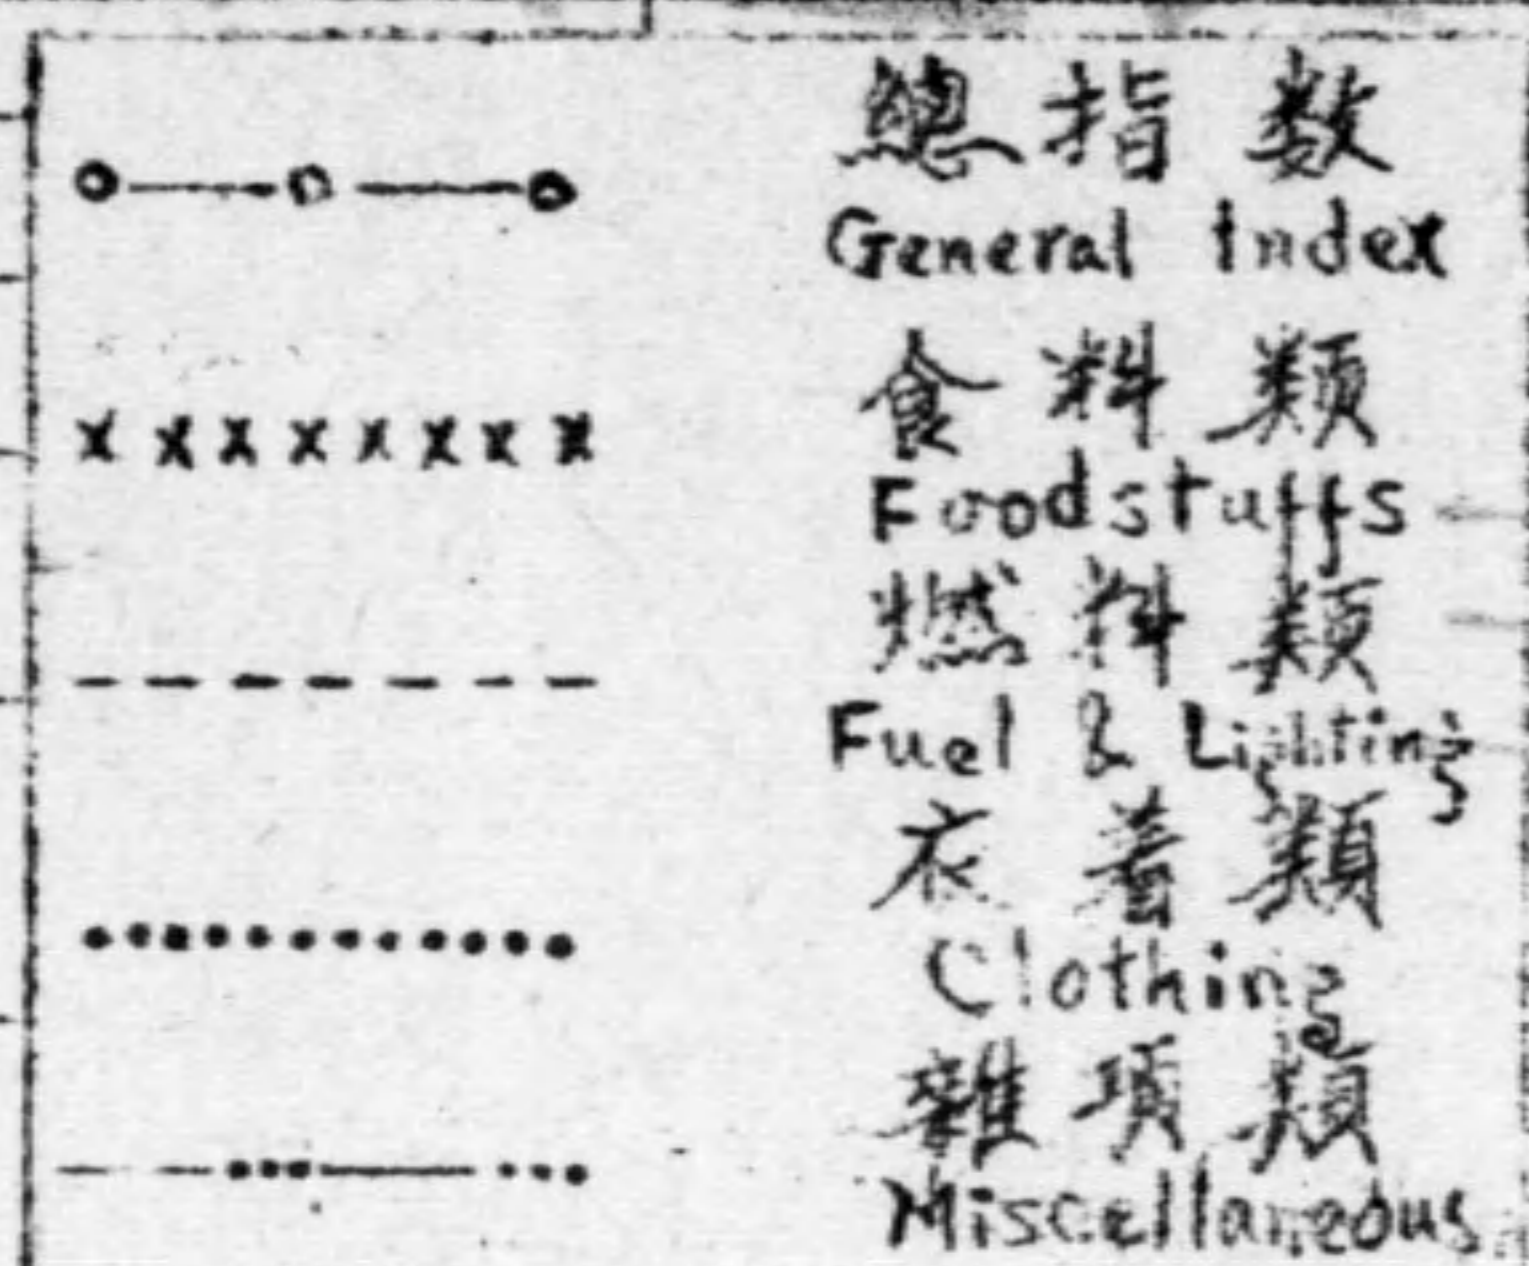 總指数
General Index
食料類
Foodstuffs
燃料類
Fuel & Lighting
衣着類
Clothing
雜項類
Miscellaneous